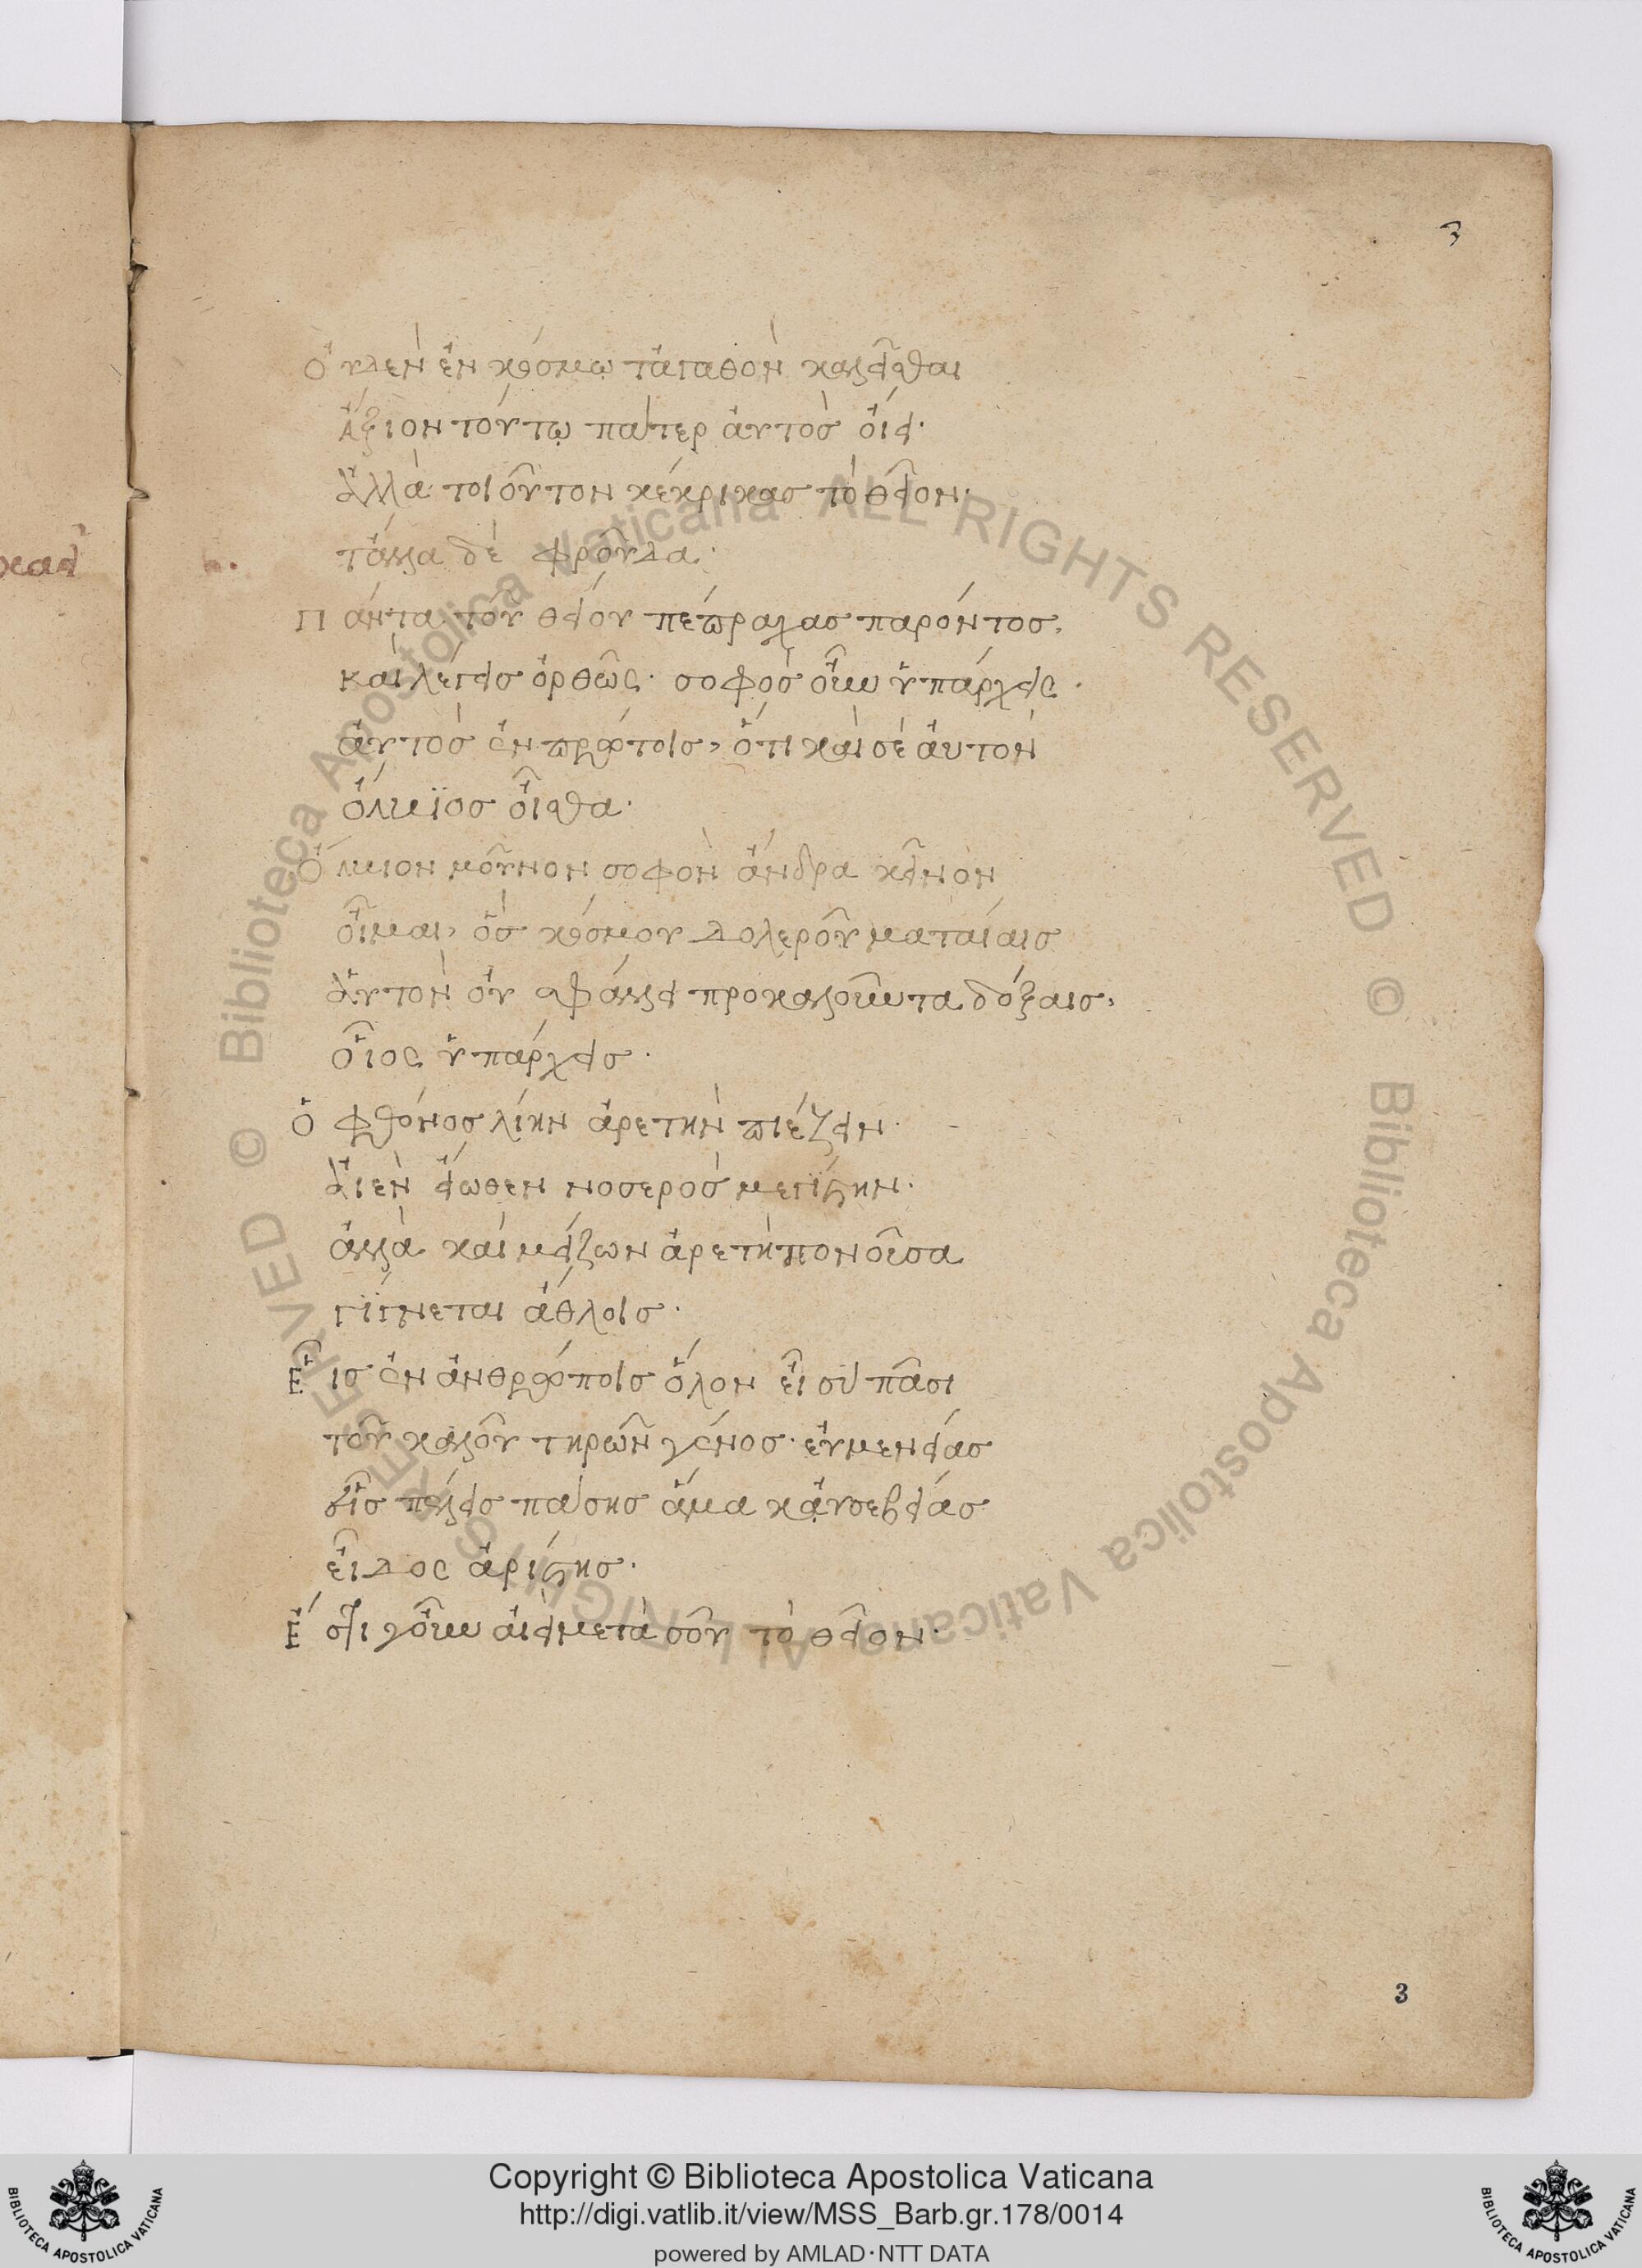 3
Ὀυδὲν ἐν κόσμω τἀγαθὸν καλεῖσθαι
ἄξιον τούτω πάτερ ἀυτὸς ὄιει·
ἀλλὰ τοιοῦτον κέκρικας τὸ θεῖον·
τἄλλα δὲ φροῦδα·
Πάντα τοῦ θείου πέπραχας παρόντος,
καὶ λέγεις ὀρθῶς· σοφὸς οὖν ὑπάρχεις·
ἀυτὸς ἐν πρώτοις, ὅτι καὶ σὲ ἀυτὸν
ὄλβιος οἶσθα·
Ὄλβιον μοῦνον σοφὸν ἄνδρα κεῖνον
οἶμαι, ὃς κόσμου δολεροῦ ματαίαις
ἀυτὸν οὐ σφάλλει προκαλοῦντα δόξαις,
οἷος ὑπάρχεις·
Ὁ φθόνος λίην ἀρετὴν πιέζειν·
ἀιὲν εἴωθεν νοσερὸς μεγίστην·
ἀλλὰ καὶ μείζων ἀρετὴ πονοῦσα
γίγνεται ἄθλοις·
Εἷς ἐν ἀνθρώποις ὅλον εἶ σὺ πᾶσι
τοῦ καλοῦ τηρῶν γένος· ἐυμενείας
εἷς πέλεις πάσης ἅμα κἀυσεβείας
εἶδος ἀρίστης·
Ἔστι γοῦν ἀιεὶ μετὰ σοῦ τὸ θεῖον·
3
Copyright © Biblioteca Apostolica Vaticana
http://digi.vatlib.it/view/MSS_Barb.gr.178/0014
powered by AMLAD·NTT DATA
BIBLIOTECA APOSTOLICA VATICANA
BIBLIOTECA APOSTOLICA VATICANA
© Biblioteca Apostolica Vaticana ALL RIGHTS RESERVED © Biblioteca Apostolica Vaticana ALL RIGHTS RESERVED